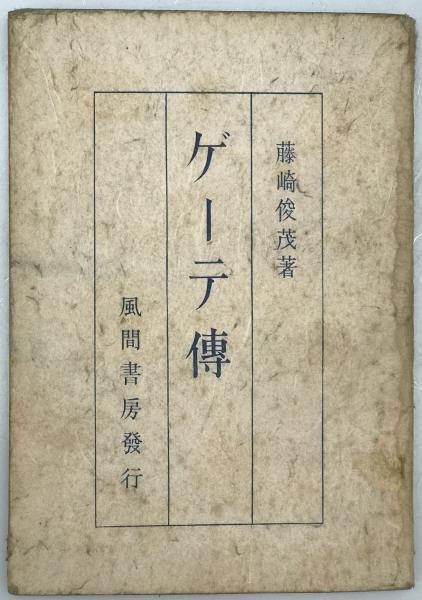 藤崎俊茂著
ゲーテ傳
風間書房發行